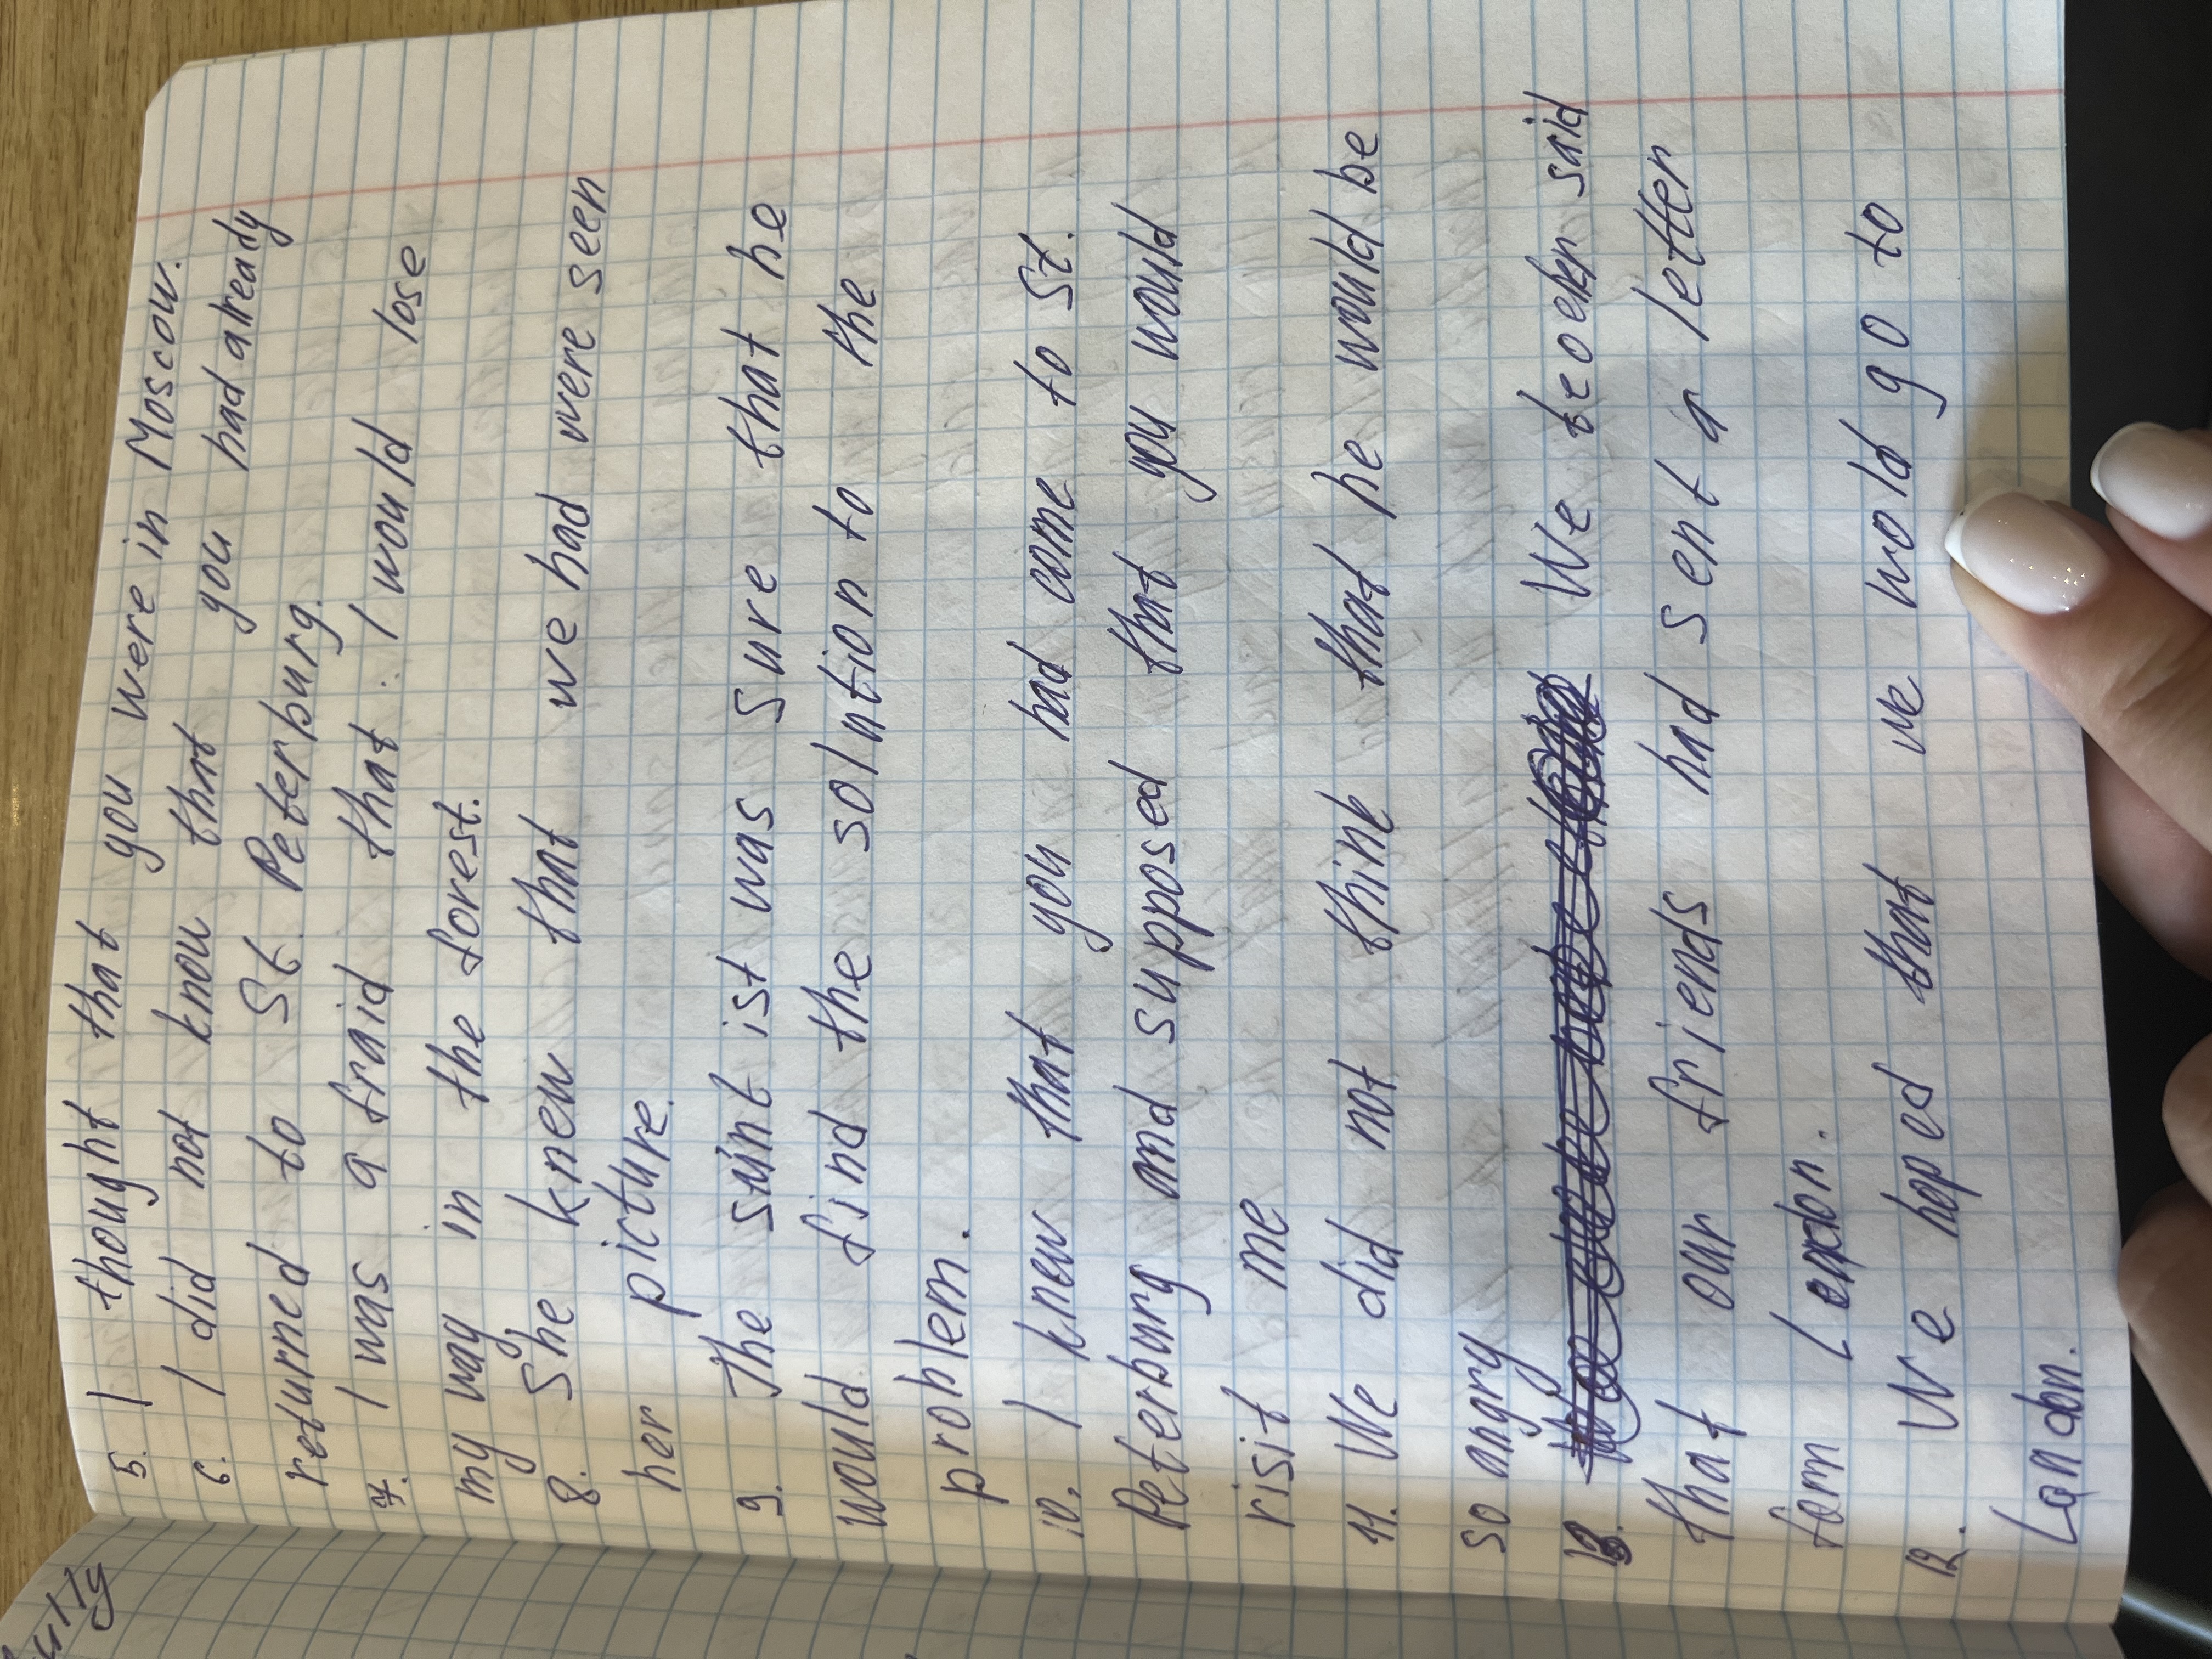 ully
5. I thought that you were in Moscow.
6. I did not know that you had already
returned to St. Peterburg.
7. I was a fraid that I would lose
my way in the forest.
8. She knew that we had were seen
her picture.
9. The suint ist was sure that he
would find the solution to the
problem.
10. I knew that you had come to St.
Peterburg and supposed that you would
risit me
11. We did not think that he would be
so angry
We said
that our friends had sent a letter
12. We hoped that we wold go to
London.